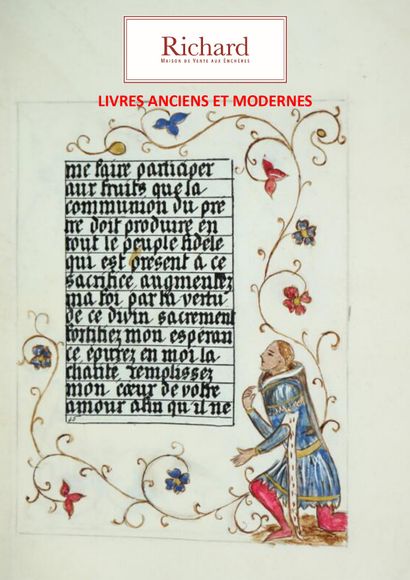 Richard
MAISON DE VENTE AUX ENCHÈRES
LIVRES ANCIENS ET MODERNES
me faire participer
aux fruits que la
communion du pre
re doit produire en
tout le peuple fidele
qui est present a ce
sacrifice augmentez
ma foi par la vertu
de ce divin sacrement
fortifiez mon esperan
ce epurez en moi la
charité, remplissez
mon cœur de votre
amour afin qu'il ne